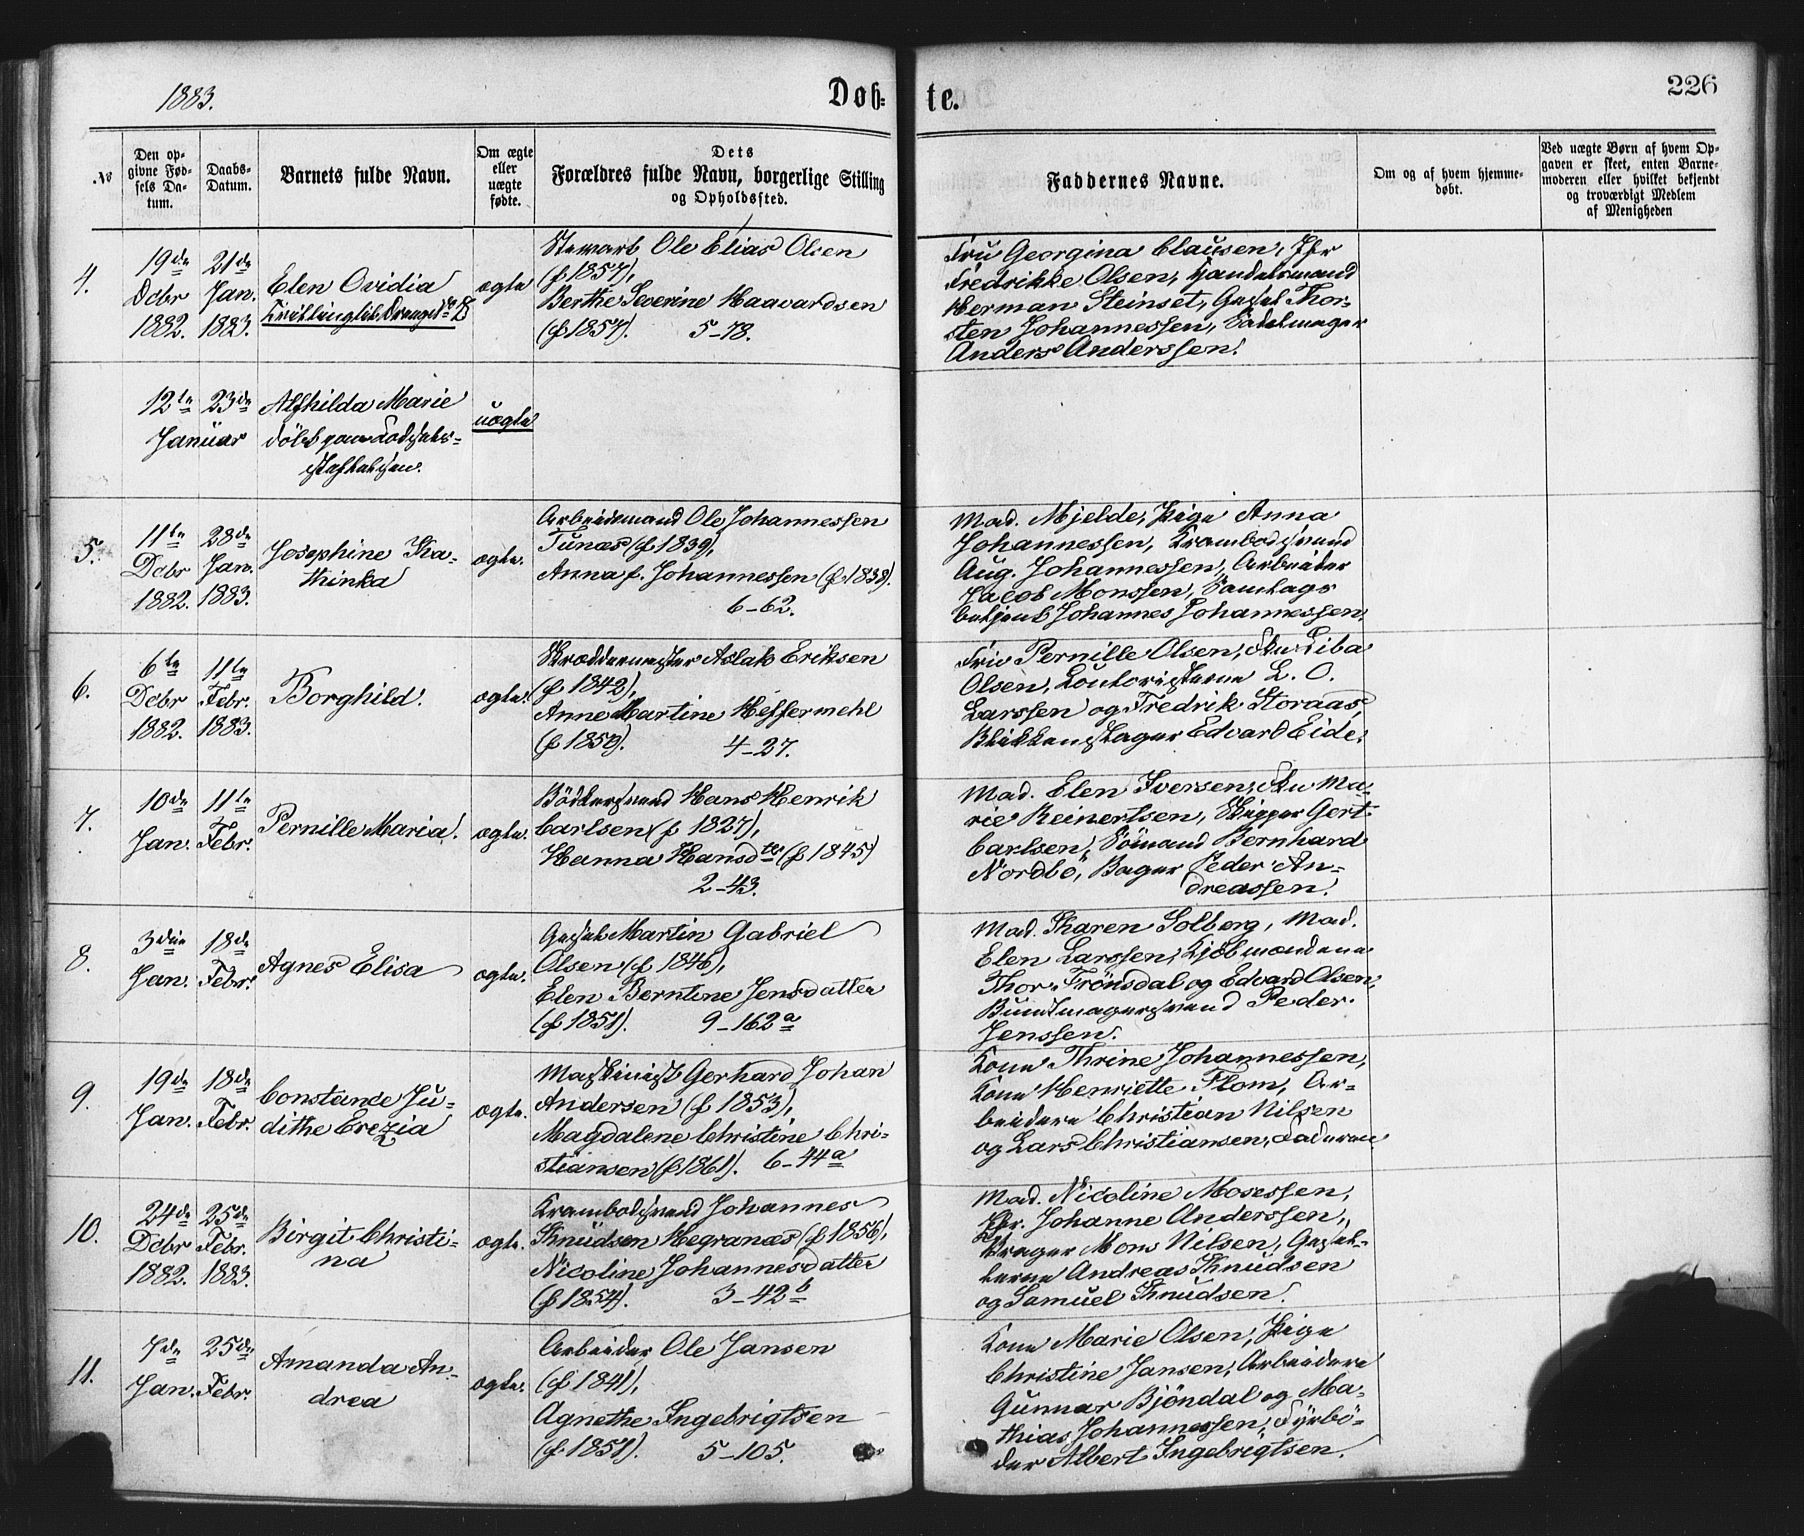 1883.
Døb-
te.
226
№
Den op-
givne Fød-
sels Da-
tum.
Daabs-
Datum.
Barnets fulde Navn.
Om ægte
eller
uægte
fødte.
Dets
Forældres fulde Navn, borgerlige Stilling
og Opholdssted.
Faddernes Navne.
Om og af hvem hjemme-
døbt.
Ved uægte Børn af hvem Op-
gaven er skeet, enten Barne-
moderen eller hvilket bekjendt
og troværdigt Medlem
af Menigheden
4.
19de
Dcbr
1882.
21de
Jan.
1883.
Elen Ovidia
ægte
Stewart Ole Elias Olsen
(f 1857),
Berthe Severine Haavardsen
(f 1857). 5-78.
Fru Georgina Clausen, Jfr
Fredrikke Olsen, Handelsmand
Herman Steinset, Gesel Thor-
sten Johannessen, Sadelmager
Anders Anderssen.
12te
23de
Januar
Alfhilda Marie
døbt paa Fødsels-
stiftelsen.
uægte
5.
11te
Dcbr
1882.
28de
Jan.
1883.
Josephine Ka-
thinka
ægte.
Arbeidsmand Ole Johannessen
Tunæs (f 1839),
Anna f. Johannessen (f 1838).
6-62.
Mad. Mjelde, Pige Anna
Johannessen, Krambodsvend
Aug. Johannessen, Arbeider
Jacob Monssen, Samlags
betjent Johannes Johannessen.
6.
6te
Dcbr
1882.
11te
Febr.
1883.
Borghild.
ægte.
Skræddermester Aslak Eriksen
(f 1842),
Anne Martine Heffermehl
(f 1850). 4-27.
Frw Pernille Olsen, Fru Liba
Olsen, Contoristerne L. O.
Larssen og Fredrik Storaas,
Blikkenslager Edvard Eide.
7.
10de
Jan.
11te
Febr.
Pernille Maria.
ægte.
Bødkersvend Hans Henrik
Carlsen (f 1827),
Hanna Hansdtr (f 1845)
2-43.
Mad. Elen Iversen, Fru Ma-
rie Reinertsen, Skipper Gert
Carlsen, Sømand Bernhard
Nordbö, Bager Peder An-
dreassen.
8.
3die
Jan.
18de
Febr.
Agnes Elisa
ægte.
Gesel Martin Gabriel
Olsen (f 1846),
Elen Berntine Jensdatter
(f 1851). 9-162a
Mad. Karen Solberg, Mad.
Elen Larssen, Kjøbmændene
Thor. Frönsdal og Edvard Olsen,
Buntmagersvend Peder
Jenssen.
9.
19de
Jan.
18de
Febr.
Constance Ju-
dithe Erezia
ægte.
Maskinist Gerhard Johan
Andersen (f 1853),
Magdalene Christine Chri-
stiansen (f 1861). 6-44a
Kone Thrine Johannessen,
Kone Henriette Flom, Ar-
beidere Christian Nilsen
og Lars Christiansen, Faderen
10.
24de
Dcbr
1882.
25de
Febr.
1883.
Birgit Christi-
na
ægte.
Krambodsvend Johannes
Knudsen Hegranæs (f 1856),
Nicoline Johannesdatter
(f 1854). 3-42b
Mad. Nicoline Mosessen,
Jfr. Johanne Anderssen,
Mons Nilsen, Gesel-
lerne Andreas Knudsen
og Samuel Knudsen.
11.
7de
Jan.
25de
Febr.
Amanda An-
drea
ægte.
Arbeider Ole Jansen
(f 1841),
Agnethe Ingebrigtsen
(f 1851). 5-105.
Kone Marie Olsen, Pige
Christine Jansen, Arbeidere
Gunnar Bjöndal og Ma-
thias Johannessen, Fyrbö-
der Albert Ingebrigtsen.